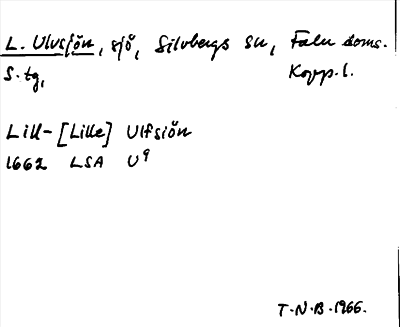 L. Ulvsjön, sjö, Silvbergs sn, Falu doms.
S. tg, Kopp. l.
Lill- [Lille] Ulfsiön
1662 LSA U9
T.N.B. 1966.